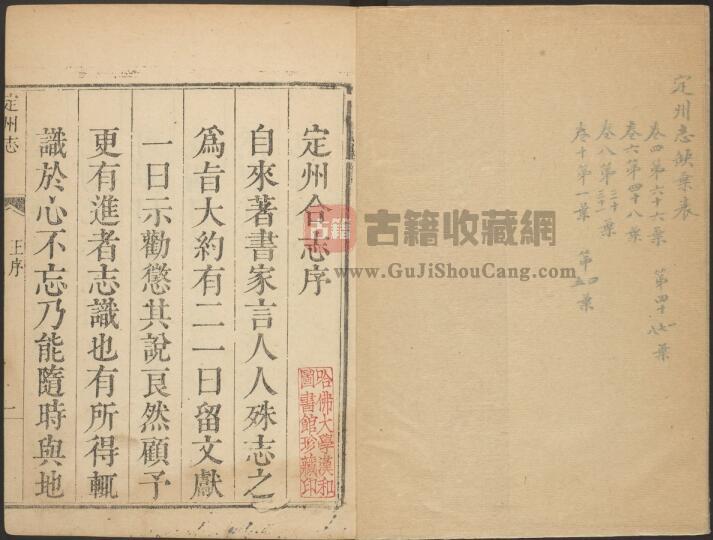 定州志缺葉表
卷四第六十六葉
卷六第四十八葉
卷八第三十葉
卷十第一葉
定州合志序
自來著書家言人人殊志之
爲旨大約有二一曰留文獻
一曰示勸懲其說良然顧予
更有進者志識也有所得輒
識於心不忘乃能隨時與地
定州志
王序
一
哈佛大學漢和
圖書館珍藏印
古籍
古籍收藏網
www.GuJiShouCang.com